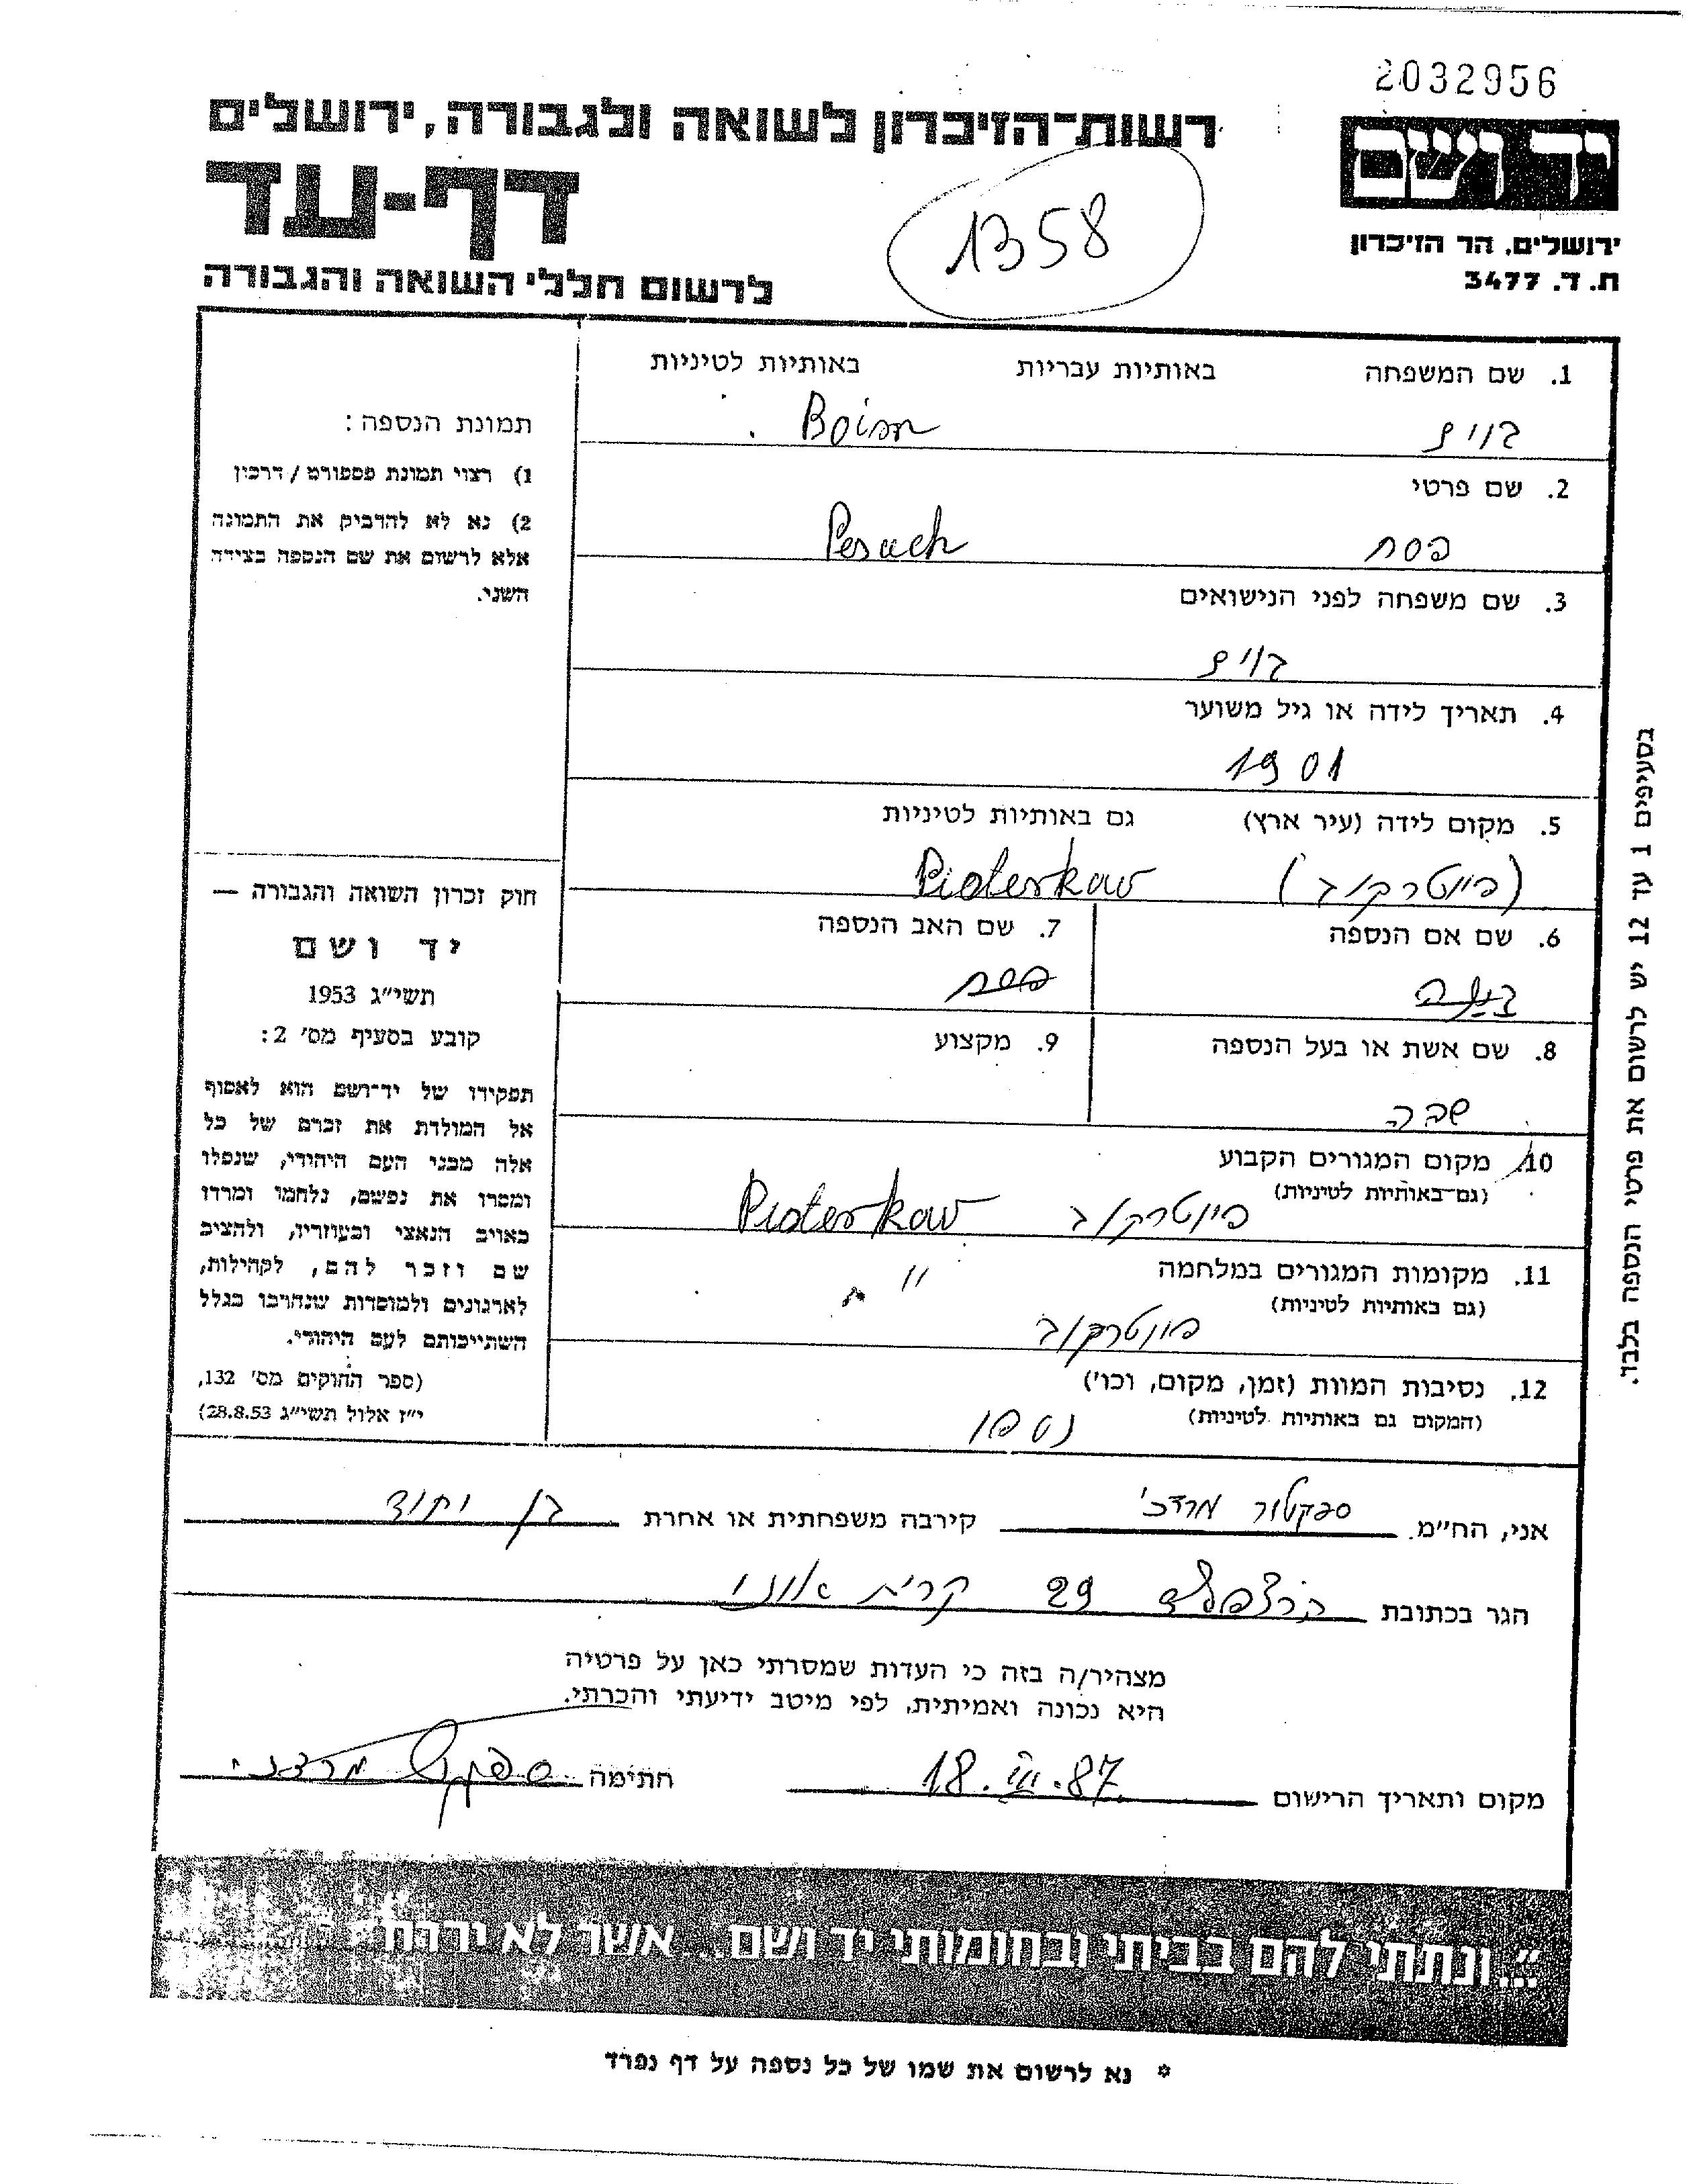 2032956
יד ושם
רשות־הזיכרון לשואה ולגבורה, ירושלים
דף-עד
1358
ירושלים, הר הזיכרון
ת. ד. 3477
לרשום חללי השואה והגבורה
1. שם המשפחה באותיות עבריות באותיות לטיניות
Boim
2. שם פרטי
פסח Pesach
3. שם משפחה לפני הנישואים
4. תאריך לידה או גיל משוער
1901
5. מקום לידה (עיר ארץ) גם באותיות לטיניות
(פיוטרקוב) Pioterkow
6. שם אם הנספה 7. שם האב הנספה
פסח
8. שם אשת או בעל הנספה 9. מקצוע
10. מקום המגורים הקבוע
(גם באותיות לטיניות)
פיוטרקוב Pioterkow
11. מקומות המגורים במלחמה
(גם באותיות לטיניות)
"
פיוטרקוב
12. נסיבות המוות (זמן, מקום, וכו')
(המקום גם באותיות לטיניות)
נספו
תמונת הנספה:
1) רצוי תמונת פספורט / דרכון
2) נא לא להדביק את התמונה
אלא לרשום את שם הנספה בצידה
השני.
חוק זכרון השואה והגבורה —
יד ושם
תשי״ג 1953
קובע בסעיף מס' 2:
תפקידו של יד־ושם הוא לאסוף
אל המולדת את זכרם של כל
אלה מבני העם היהודי, שנפלו
ומסרו את נפשם, נלחמו ומרדו
באויב הנאצי ובעוזריו, ולהציב
שם וזכר להם, לקהילות,
לארגונים ולמוסדות שנחרבו בגלל
השתייכותם לעם היהודי.
(ספר החוקים מס' 132,
י״ז אלול תשי״ג 28.8.53)
בסעיפים 1 עד 12 יש לרשום את פרטי הנספה בלבד.
אני, הח״מ. ספקטור מרדכי קירבה משפחתית או אחרת בן
הגר בכתובת הרצפלד 29 קרית אונו
מצהיר/ה בזה כי העדות שמסרתי כאן על פרטיה
היא נכונה ואמיתית, לפי מיטב ידיעתי והכרתי.
מקום ותאריך הרישום 18.VIII.87. חתימה ספקטור מרדכי
״...ונתתי להם בביתי ובחומותי יד ושם... אשר לא יכרת״
* נא לרשום את שמו של כל נספה על דף נפרד